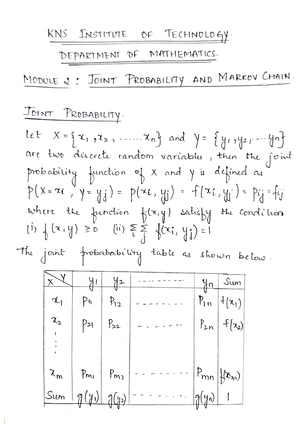 KNS INSTITUTE OF TECHNOLOGY
DEPARTMENT OF MATHEMATICS.
MODULE 2 : JOINT PROBABILITY AND MARKOV CHAIN.
JOINT PROBABILITY.
Let X = {x₁, x₂, ...... xₙ} and Y = {y₁, y₂, ... yₙ}
are two discrete random variables, then the joint
probability function of X and Y is defined as
P(X = xᵢ, Y = yⱼ) = P(xᵢ, yⱼ) = f(xᵢ, yⱼ) = Pᵢⱼ = fᵢⱼ
where the function f(x, y) satisfy the condition
(i) f(x, y) ≥ 0 (ii) Σᵢ Σⱼ f(xᵢ, yⱼ) = 1
The joint probabability table as shown below.
X Y y₁ y₂ ---------- yₙ Sum
x₁ P₁₁ P₁₂ ---------- P₁ₙ f(x₁)
x₂ P₂₁ P₂₂ ---------- P₂ₙ f(x₂)
xₘ Pₘ₁ Pₘ₂ ---------- Pₘₙ f(xₘ)
Sum g(y₁) g(y₂) ---------- g(yₙ) 1